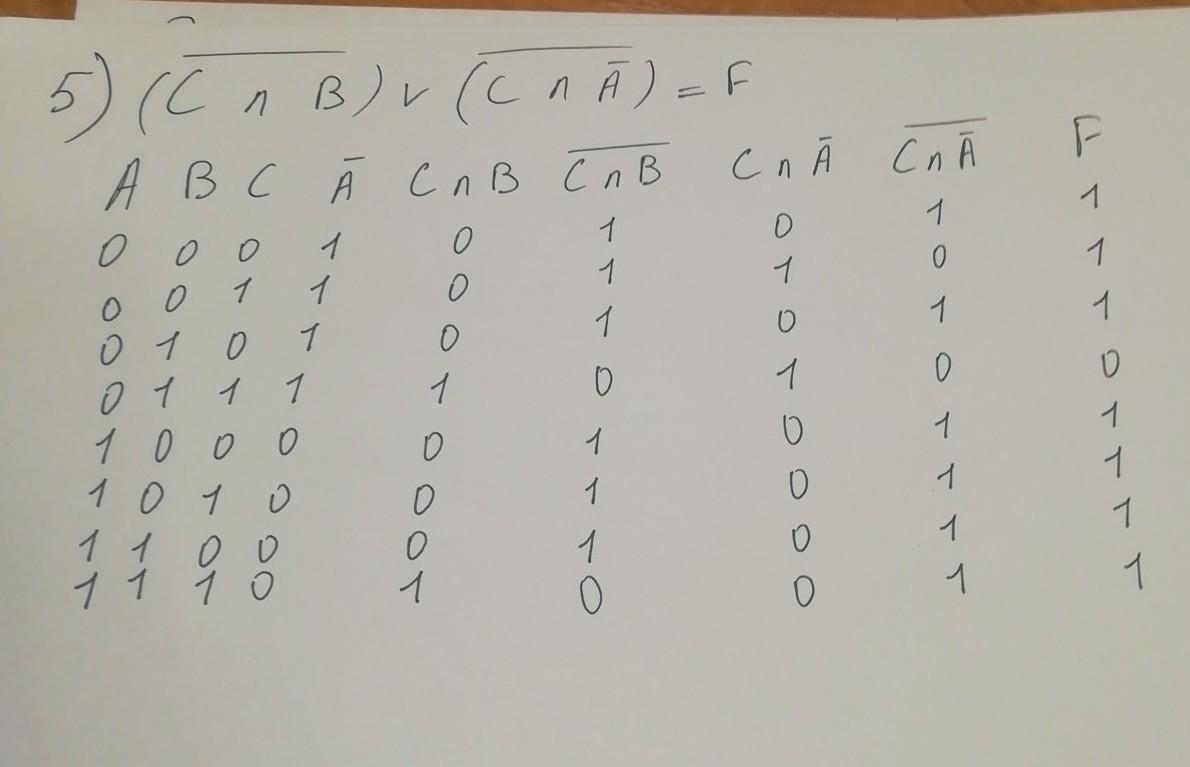 5) (C̅ ̅∩̅ ̅B̅) ∨ (C̅ ̅∩̅ ̅Ā̅) = F
A B C Ā C ∩ B C̅ ̅∩̅ ̅B̅ C ∩ Ā C̅ ̅∩̅ ̅Ā̅ F
0 0 0 1 0 1 0 1 1
0 0 1 1 0 1 1 0 1
0 1 0 1 0 1 0 1 1
0 1 1 1 1 0 1 0 0
1 0 0 0 0 1 0 1 1
1 0 1 0 0 1 0 1 1
1 1 0 0 0 1 0 1 1
1 1 1 0 1 0 0 1 1